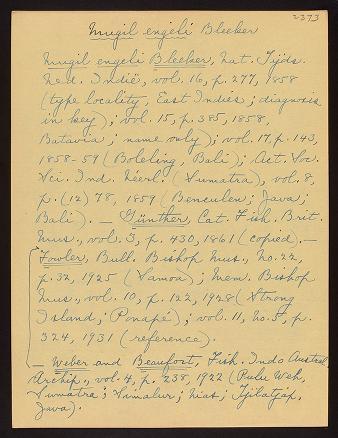 2373
Mugil engeli Bleeker
Mugil engeli Bleeker, Nat. Tijds.
Ned. Indië, vol. 16, p. 277, 1858
(type locality, East Indies; diagnosis
in key); vol. 15, p. 385, 1858,
Batavia; name only); vol. 17, p. 143,
1858-59 (Boleling, Bali); Act. Soc.
Sci. Ind. Néerl. (Sumatra), vol. 8,
p. (12) 78, 1859 (Benculen; Java;
Bali). — Günther, Cat. Fish. Brit.
Mus., vol. 3, p. 430, 1861 (copied). —
Fowler, Bull. Bishop Mus., no. 22,
p. 32, 1925 (Samoa); Mem. Bishop
Mus., vol. 10, p. 122, 1928 (Strong
Island; Ponapé); vol. 11, no. 5, p.
324, 1931 (reference).
— Weber and Beaufort, Fish. Indo Austral.
Archip., vol. 4, p. 238, 1922 (Pulu Weh,
Sumatra; Simalur; Nias; Tjilatjap,
Java).